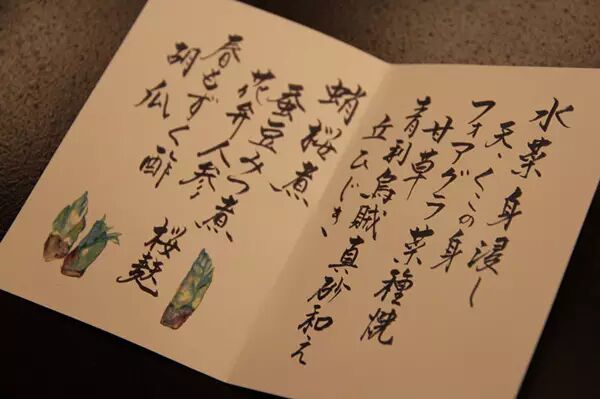 水菜 身浸し
天、くこの身
フォアグラ 菜種焼
甘草
青利烏賊 真砂和え
丘ひじき、
蛸桜煮
蚕豆みつ煮
花弁人参 桜麩
春もずく酢
胡瓜